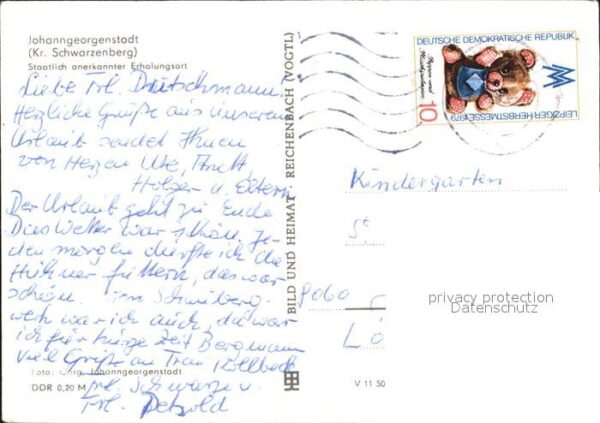 Johanngeorgenstadt
(Kr. Schwarzenberg)
Staatlich anerkannter Erholungsort
Liebe Frl. Deutschmann.
Herzliche Grüße aus unserem
Urlaub sendet Ihnen
von Herzen Ute,
Holger u. Eltern
Der Urlaub geht zu Ende
Das Wetter war schön. Je-
den morgen durfte ich die
Hühner füttern, das war
schön. Im
werk war ich auch, da war
ich für kurze Zeit Bergmann
Viel Grüße an Frau
Frl. Schwarze u.
Frl. Petzold
Foto: Johanngeorgenstadt
DDR 0,20 M
BILD UND HEIMAT REICHENBACH (VOGTL)
V 11 50
DEUTSCHE DEMOKRATISCHE REPUBLIK
Puppen und
10
LEIPZIGER HERBSTMESSE 1979
Kindergarten
St
Lö
privacy protection
Datenschutz